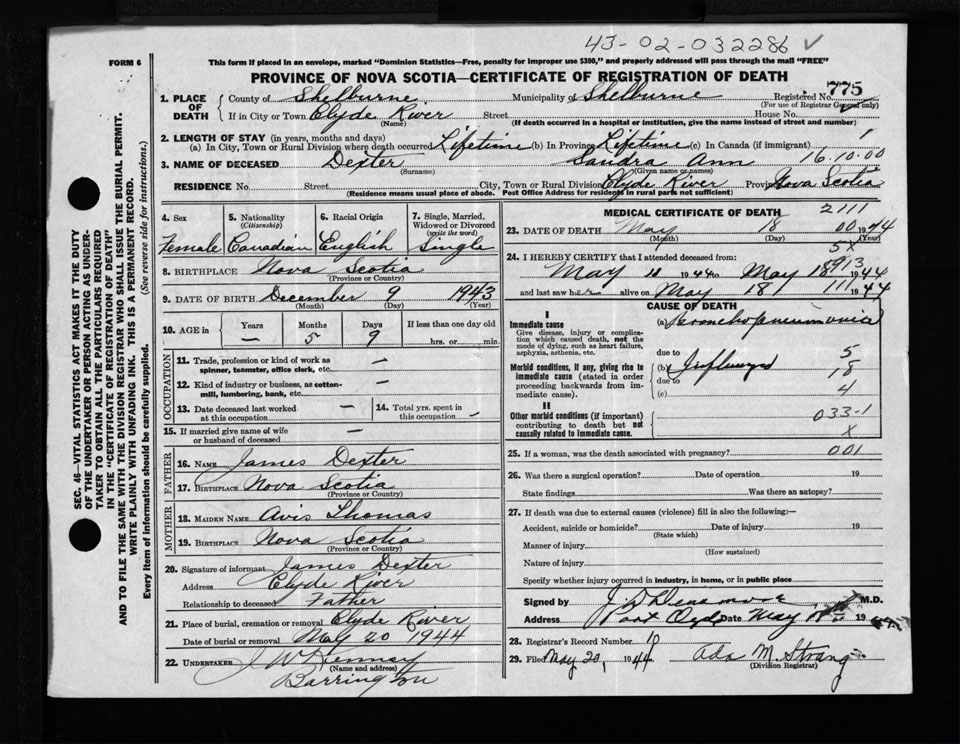 43-02-032286 ✓
FORM 6
This form if placed in an envelope, marked "Dominion Statistics—Free, penalty for improper use $300," and properly addressed will pass through the mail "FREE"
PROVINCE OF NOVA SCOTIA—CERTIFICATE OF REGISTRATION OF DEATH
775
1. PLACE OF DEATH County of Shelburne Municipality of Shelburne Registered No.
(For use of Registrar General only)
If in City or Town Clyde River Street House No.
(Name) (If death occurred in a hospital or institution, give the name instead of street and number)
2. LENGTH OF STAY (in years, months and days) 1
(a) In City, Town or Rural Division where death occurred Lifetime (b) In Province Lifetime (c) In Canada (if immigrant)
3. NAME OF DECEASED Dexter Sandra Ann 16.10.00
(Surname) (Given name or names)
RESIDENCE No. Street City, Town or Rural Division Clyde River Province Nova Scotia
(Residence means usual place of abode. Post Office Address for residents in rural parts not sufficient)
4. Sex 5. Nationality (Citizenship) 6. Racial Origin 7. Single, Married, Widowed or Divorced (write the word)
Female Canadian English Single
8. BIRTHPLACE Nova Scotia
(Province or Country)
9. DATE OF BIRTH December 9 1943
(Month) (Day) (Year)
10. AGE in Years Months Days If less than one day old
— 5 9 hrs. or min.
OCCUPATION
11. Trade, profession or kind of work as spinner, teamster, office clerk, etc. —
12. Kind of industry or business, as cotton-mill, lumbering, bank, etc. —
13. Date deceased last worked at this occupation — 14. Total yrs. spent in this occupation —
15. If married give name of wife or husband of deceased —
FATHER
16. NAME James Dexter
17. BIRTHPLACE Nova Scotia
(Province or Country)
MOTHER
18. MAIDEN NAME Avis Thomas
19. BIRTHPLACE Nova Scotia
(Province or Country)
20. Signature of informant James Dexter
Address Clyde River
Relationship to deceased Father
21. Place of burial, cremation or removal Clyde River
Date of burial or removal May 20 1944
22. UNDERTAKER J W
(Name and address)
Barrington
MEDICAL CERTIFICATE OF DEATH 2111
23. DATE OF DEATH May 18 00 1944
(Month) (Day) (Year)
5x
24. I HEREBY CERTIFY that I attended deceased from:
May 1944 to May 18 1944
and last saw her alive on May 18 111 1944
CAUSE OF DEATH
I
Immediate cause
Give disease, injury or complication which caused death, not the mode of dying, such as heart failure, asphyxia, asthenia, etc.
(a) Bronchopneumonia
due to 5
Morbid conditions, if any, giving rise to immediate cause (stated in order proceeding backwards from immediate cause).
(b) Influenza 18
due to 4
(c)
II
Other morbid conditions (if important) contributing to death but not causally related to immediate cause.
033-1
x
25. If a woman, was the death associated with pregnancy? 001
26. Was there a surgical operation? Date of operation 19
State findings Was there an autopsy?
27. If death was due to external causes (violence) fill in also the following:—
Accident, suicide or homicide? Date of injury 19
(State which)
Manner of injury
(How sustained)
Nature of injury
Specify whether injury occurred in industry, in home, or in public place
Signed by M.D.
Address Port Clyde Date May 19
28. Registrar's Record Number 10
29. Filed May 20, 1944 Ada M. Strang
(Division Registrar)
SEC. 46—VITAL STATISTICS ACT MAKES IT THE DUTY
OF THE UNDERTAKER OR PERSON ACTING AS UNDER-
TAKER TO OBTAIN ALL THE PARTICULARS REQUIRED
IN THE "CERTIFICATE OF REGISTRATION OF DEATH"
AND TO FILE THE SAME WITH THE DIVISION REGISTRAR WHO SHALL ISSUE THE BURIAL PERMIT.
WRITE PLAINLY WITH UNFADING INK. THIS IS A PERMANENT RECORD.
Every item of information should be carefully supplied. (See reverse side for instructions.)